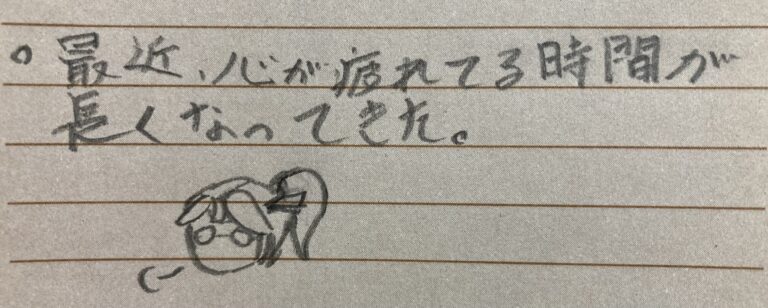 。最近、心が疲れてる時間が
長くなってきた。